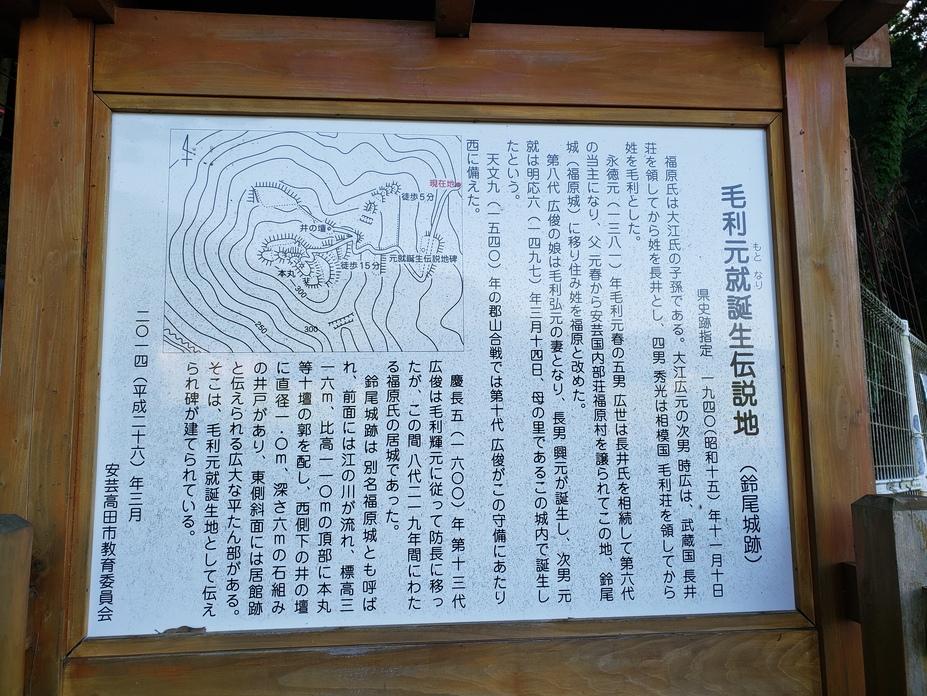 毛利元就誕生伝説地（鈴尾城跡）
もと なり
県史跡指定 一九四〇（昭和十五）年十一月十日
福原氏は大江氏の子孫である。大江広元の次男 時広は、武蔵国 長井
荘を領してから姓を長井とし、四男 秀光は相模国 毛利荘を領してから
姓を毛利とした。
永徳元（一三八一）年毛利元春の五男 広世は長井氏を相続して第六代
の当主になり、父 元春から安芸国内部荘福原村を譲られてこの地、鈴尾
城（福原城）に移り住み姓を福原と改めた。
第八代 広俊の娘は毛利弘元の妻となり、長男 興元が誕生し、次男 元
就は明応六（一四九七）年三月十四日、母の里であるこの城内で誕生し
たという。
天文九（一五四〇）年の郡山合戦では第十代 広俊がこの守備にあたり
西に備えた。
慶長五（一六〇〇）年 第十三代
広俊は毛利輝元に従って防長に移っ
たが、この間 八代二一九年間にわた
る福原氏の居城であった。
鈴尾城跡は 別名福原城とも呼ば
れ、前面には江の川が流れ、標高三
一六m、比高一一〇mの頂部に本丸
等十壇の郭を配し、西側下の井の壇
に直径一・〇m、深さ六mの石組み
の井戸があり、東側斜面には居館跡
と伝えられる広大な平たん部がある。
そこは、毛利元就誕生地として伝え
られ碑が建てられている。
二〇一四（平成二十六）年三月
安芸高田市教育委員会
現在地
徒歩5分
井の壇
元就誕生伝説地碑
徒歩15分
本丸
300
300
250